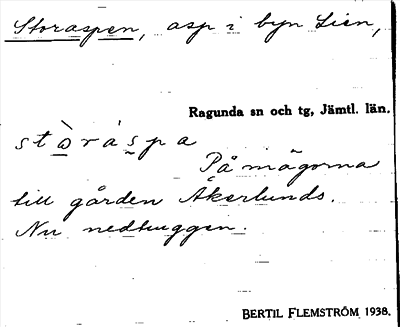 Storaspen, asp i byn Lien,
Ragunda sn och tg, Jämtl. län.
stò̱rás̱pa
På mågorna
till gården Åkerlunds.
Nu nedhuggen.
BERTIL FLEMSTRÖM 1938.